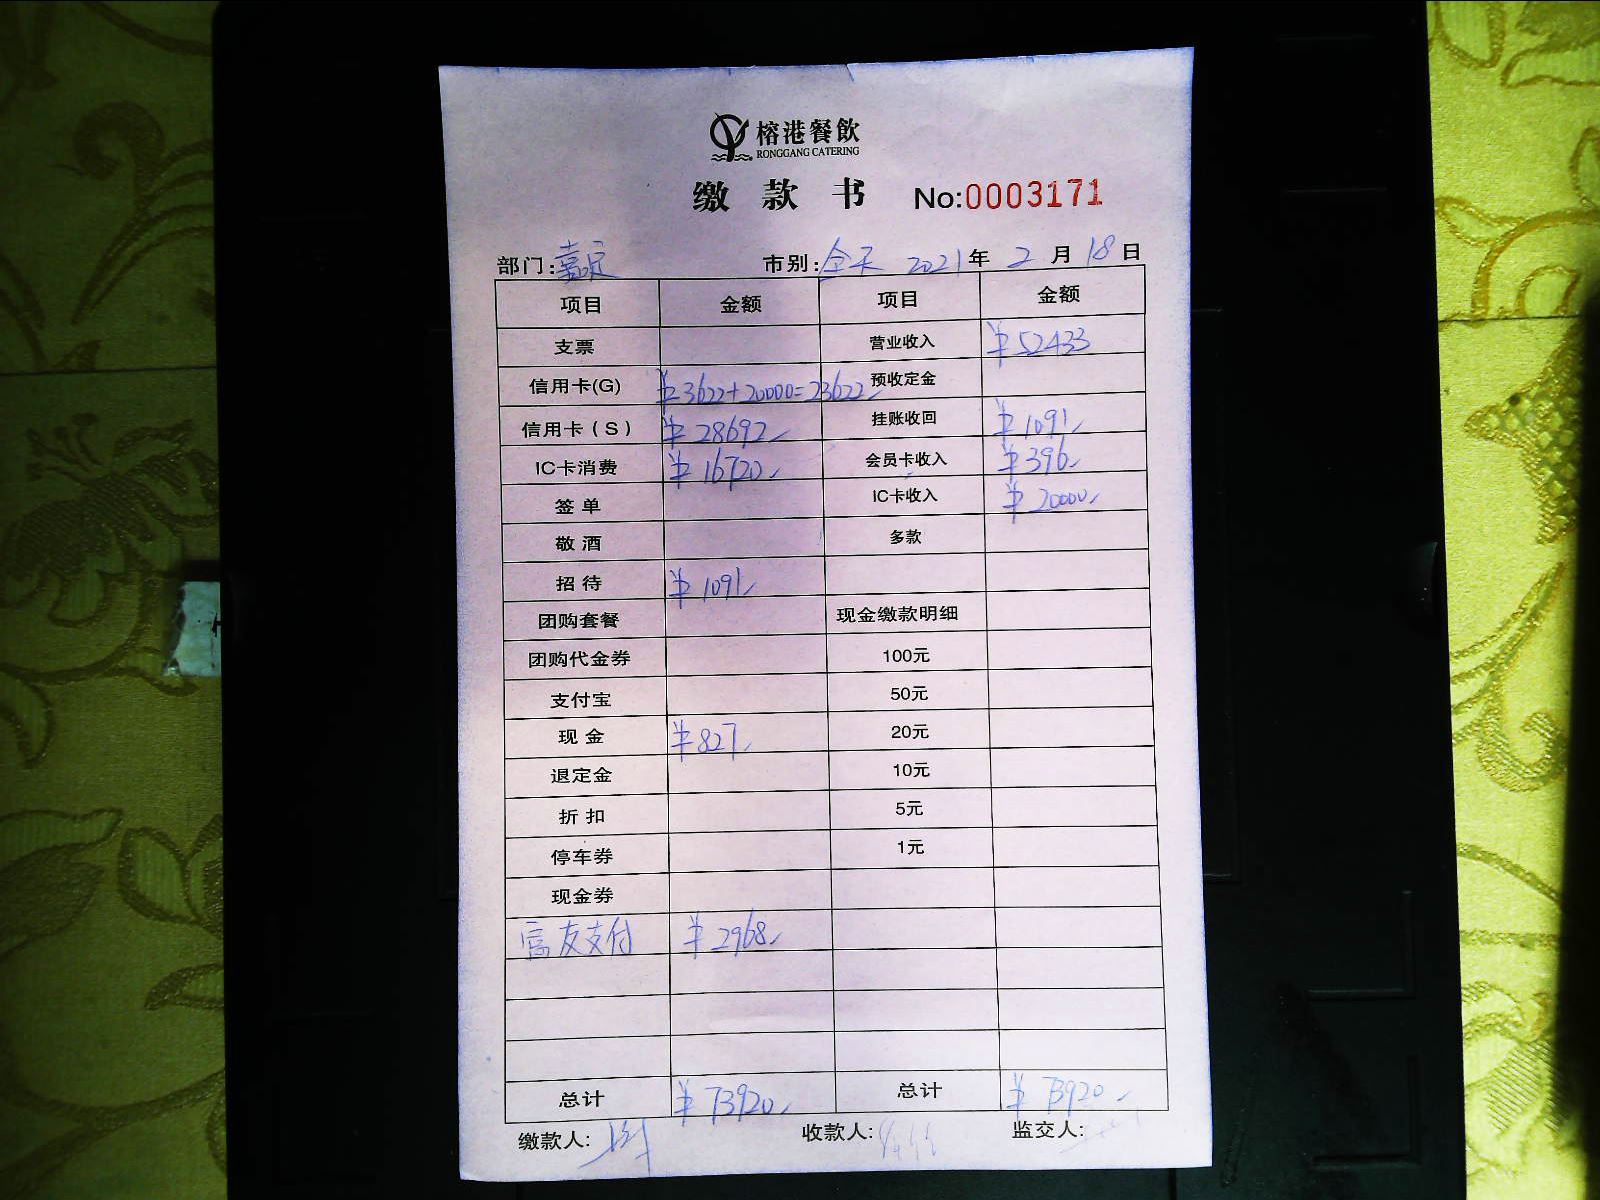 榕港餐飲
RONGGANG CATERING
缴款书 No:0003171
部门:嘉定 市别:全天 2021年2月18日
项目 金额 项目 金额
支票 营业收入 ¥52433
信用卡(G) ¥3622+20000=23622 预收定金
信用卡(S) ¥28692 挂账收回 ¥1091
IC卡消费 ¥16720 会员卡收入 ¥396
签单 IC卡收入 ¥20000
敬酒 多款
招待 ¥1091
团购套餐 现金缴款明细
团购代金券 100元
支付宝 50元
现金 ¥827 20元
退定金 10元
折扣 5元
停车券 1元
现金券
富友支付 ¥2968
总计 ¥73920 总计 ¥73920
缴款人: 收款人: 监交人: